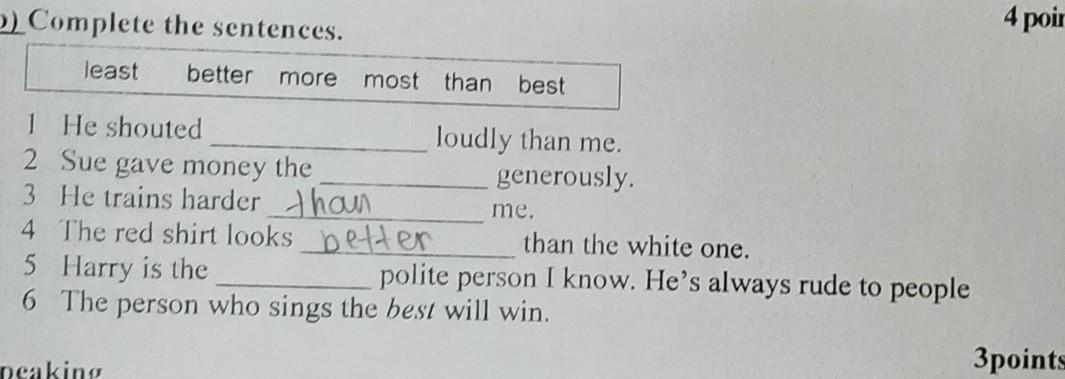 b) Complete the sentences. 4 poin
least better more most than best
1 He shouted ____________ loudly than me.
2 Sue gave money the ____________ generously.
3 He trains harder than me.
4 The red shirt looks better than the white one.
5 Harry is the ____________ polite person I know. He's always rude to people
6 The person who sings the best will win.
3points
peaking